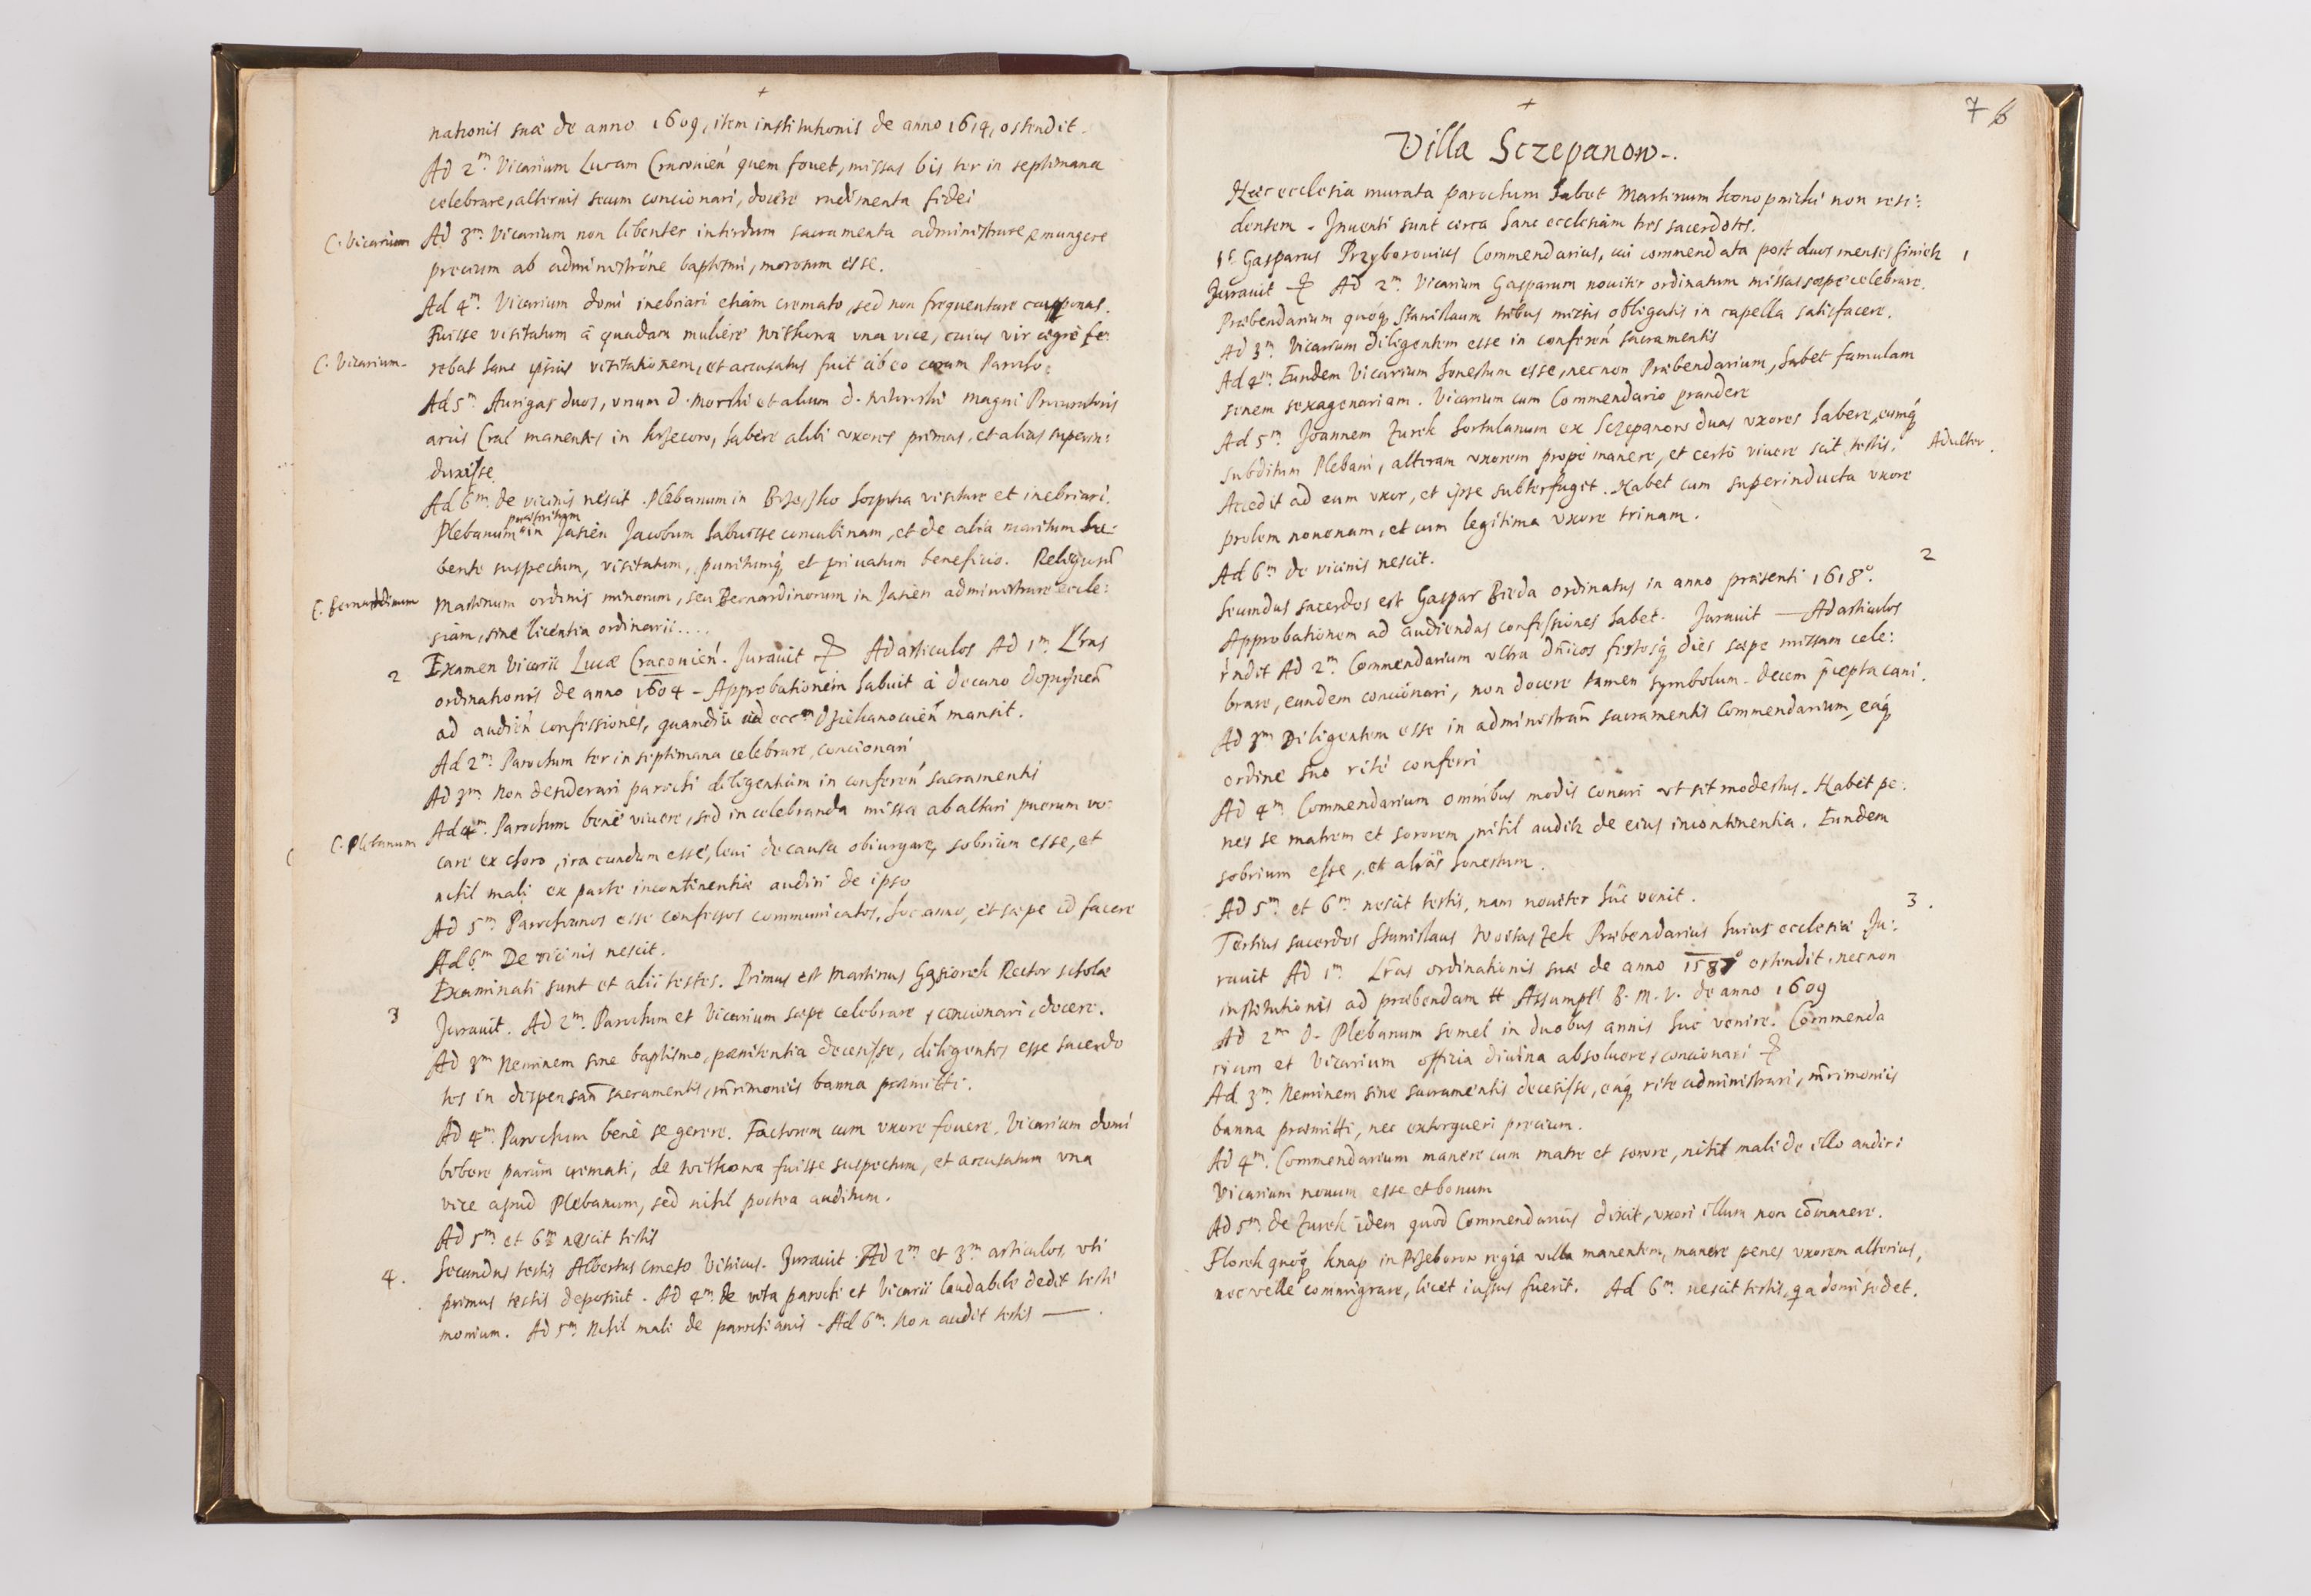 +
nationis suæ de anno 1609, item institutionis de anno 1614, ostendit.
Ad 2m. Vicarium Lucam Cracovień quem fouet, missas bis ter in septimana
celebrare, alternis secum concionari, docere rudimenta fidei
C. Vicarium Ad 3m. Vicarium non libenter interdum sacramenta administrare, emungere
precium ab administrōne baptismi, morosum esse.
Ad 4m. Vicarium domi inebriari etiam cremato, sed non frequentare cauponas.
Fuisse visitatum à quadam muliere Withowa vna vice, cuius vir ægrè fe:
C. Vicarium. rebat hanc ipsius visitationem, et accusatus fuit ab eo coram Parocho:
Ad 5m. Aurigas duos, vnum d. Morski et alium d. magni Procuratoris
arcis Cral manentes in, habere alibi vxores primas, et alias superin:
duxisse
Ad 6m. de vicinis nescit. Plebanum in hospitia visitare et inebriari.
Plebanum præteritum in Jasień Jacobum habuisse concubinam, et de alia maritum ha:
bente suspectum, visitatum, punitumq; et priuatum beneficio. Religiosū
C. Bernardinum Martinum ordinis minorum, seu Bernardinorum in Jasień administrare eccle:
siam, sine licentia ordinarii....
2 Examen Vicarii Lucæ Cracouień. Jurauit Ad articulos Ad 1m. Lrās
ordinationis de anno 1604 - Approbationem habuit à decano
ad audień confessiones, quandiu ad eccm mansit.
Ad 2m. Parochum ter in septimana celebrare, concionari
Ad 3m. Non desiderari parochi diligentiam in conferen sacramentis
C. Plebanum Ad 4m. Parochum benè viuere, sed in celebranda missa ab altari puerum vo:
care ex choro, iracundum esse, leui de causa obiurgare, sobrium esse, et
nihil mali ex parte incontinentiæ audiri de ipso
Ad 5m. Parochianos esse confessos communicatos, hoc anno, et sæpe id facere
Ad 6m De vicinis nescit.
Examinati sunt et alii testes. Primus est Martinus Gąsiorek Rector scholæ
3 Jurauit. Ad 2m. Parochum et Vicarium sæpe celebrare, concionari, docere.
Ad 3m Neminem sine baptismo, pænitentia decessisse, diligentes esse sacerdo
tes in dispensañ sacramentis, mr̄imoniis banna præmitti.
Ad 4m. Parochum benè se gerere. Factorem cum vxore fouere, Vicarium domi
bibere parùm cremati, de Withowa fuisse suspectum, et accusatum vna
vice apud Plebanum, sed nihil postea auditum.
Ad 5m et 6m nescit testis
4. Secundus testis Albertus Cmeto Vitricus. Jurauit. Ad 2m et 3m articulos, vti
primus testis deposuit. Ad 4m. de vita parochi et Vicarii laudabile dedit testi
monium. Ad 5m. Nihil mali de parochianis. Ad 6m. Non audit testis —.
+
7 6
Villa Sczepanow.
Hæc ecclesia murata parochum habet Martinum Konopnicki non resi:
dentem. Inuenti sunt circa hanc ecclesiam tres sacerdotes.
1s Gasparus Przyborouius Commendarius, cui commendata post duos menses finietr 1
Jurauit Ad 2m. Vicarium Gasparum nouiter ordinatum missas sæpe celebrare.
Præbendarium quoq; Stanislaum tribus missis obligatis in capella satisfacere.
Ad 3m. Vicarium diligentem esse in conferen sacramentis
Ad 4m. Eundem Vicarium honestum esse, necnon Præbendarium, habet famulam
senem sexagenariam. Vicarium cum Commendario prandere
Ad 5m. Joannem Zurek hortulanum ex Sczepanow duas vxores habere, eumq;
subditum Plebani, alteram vxorem propè manere, et certò viuere scit testis. Adulter.
Accedit ad eum vxor, et ipse subterfugit. Habet cum superinducta vxore
prolem nonenam, et cum legitima vxore trinam.
Ad 6m. de vicinis nescit. 2
Secundus sacerdos est Gaspar Bieda ordinatus in anno præsenti 1618o.
Approbationem ad audiendas confessiones habet. Jurauit — Ad articulos
rñdit Ad 2m. Commendarium vltra dn̄icos festosq; dies sæpe missam cele:
brare, eundem concionari, non docere tamen symbolum. Decem p̄cepta cani.
Ad 3m Diligentem esse in administrañ sacramentis Commendarium, eaq;
ordine suo ritè conferri
Ad 4m Commendarium omnibus modis conari vt sit modestus. Habet pe:
nes se matrem et sororem, nihil auditr de eius incontinentia. Eundem
sobrium esse, et aliàs honestum.
Ad 5m. et 6m. nescit testis, nam nouiter huc venit. 3.
Tertius sacerdos Stanislaus Woitaszek Præbendarius huius ecclesiæ Ju:
rauit Ad 1m. Lr̄as ordinationis suæ de anno 1587o ostendit, necnon
institutionis ad præbendam tt Assumptis B. M. V. de anno 1609
Ad 2m D. Plebanum semel in duobus annis huc venire. Commenda
rium et Vicarium officia diuina absoluere, concionari
Ad 3m. Neminem sine sacramentis decessisse, eaq; rite administrari, mr̄imoniis
banna præmitti, nec extorqueri precium.
Ad 4m. Commendarium manere cum matre et sorore, nihil mali de illo audiri
Vicarium nouum esse et bonum
Ad 5m. de Zurek idem quod Commendarius dixit, vxori illum non cōmanere.
Florek quoq; Knap in Przeborow regia villa manentem, manere penes vxorem alterius,
nec velle commigrare, licet iussus fuerit. Ad 6m. nescit testis, qa domi sedet.